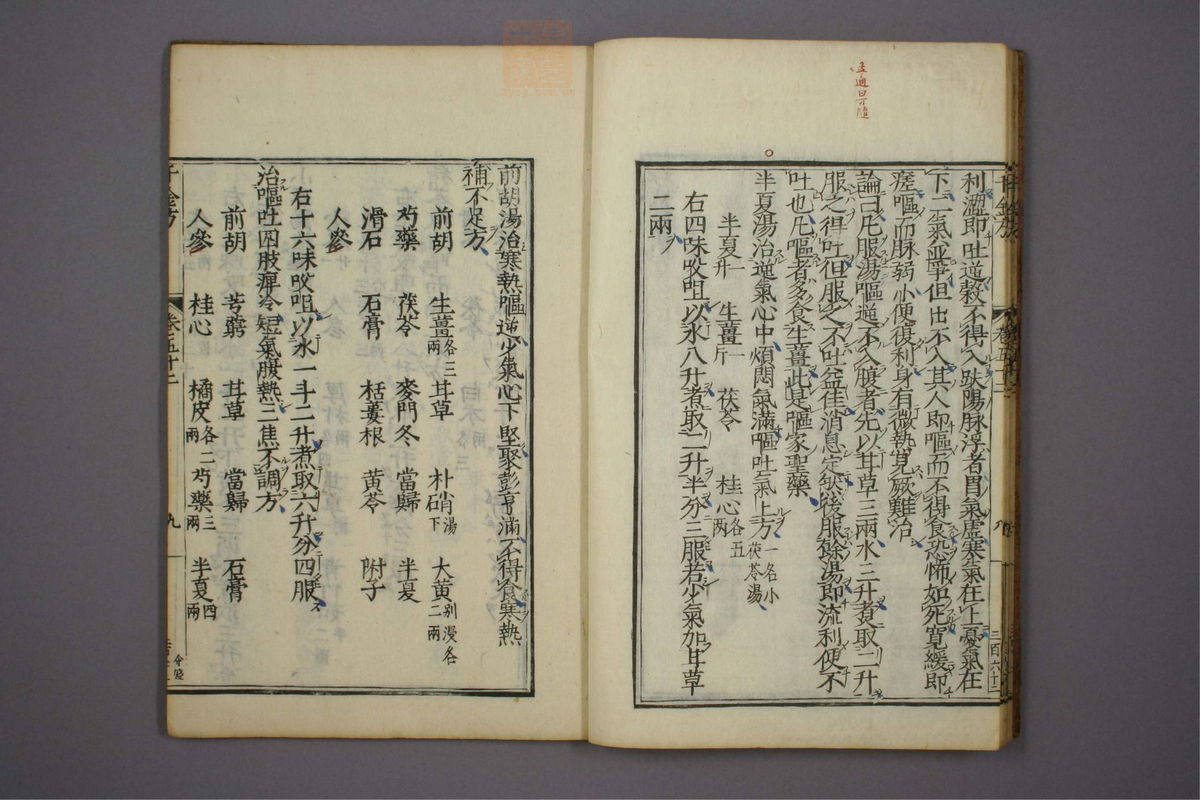 孟通曰可隨
利澀即吐逆穀不得入趺陽脉浮者胃氣虛寒氣在上憂氣在
下二氣並爭但出不入其人即嘔而不得食恐怖如死寬緩即
瘥嘔而脉弱小便復利身有微熱見厥難治
論曰凡服湯嘔逆不入腹者先以甘草三兩水三升煮取二升
服之得吐但服之不吐益佳消息定然後服餘湯即流利便不
吐也凡嘔者多食生薑此是嘔家聖藥
半夏湯治逆氣心中煩悶氣滿嘔吐氣上方一名小茯苓湯
半夏一升 生薑一斤 茯苓 桂心各五兩
右四味㕮咀以水八升煮取二升半分三服若少氣加甘草
二兩
三百六十二
前胡湯治寒熱嘔逆少氣心下堅聚彭亨滿不得食寒熱
補不足方
前胡 生薑各三兩 甘草 朴硝湯下 大黃別浸各二兩
芍藥 茯苓 麥門冬 當歸 半夏
滑石 石膏 栝蔞根 黃芩 附子
人參
右十六味㕮咀以水一斗二升煮取六升分四服
治嘔吐四肢痹冷短氣腹熱三焦不調方
前胡 芎藭 甘草 當歸 石膏
人參 桂心 橘皮各二兩 芍藥三兩 半夏四兩
千金方 卷五十二 九